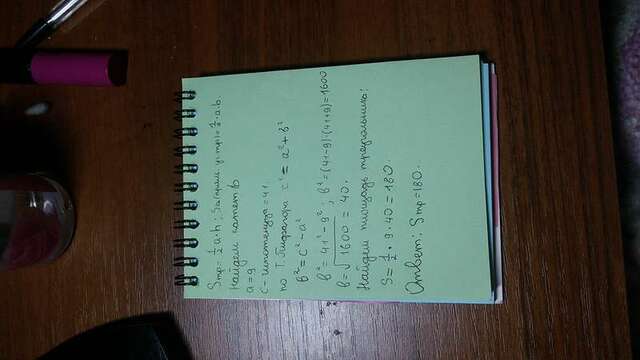 Sтр = 1/2 a·h; Sпрям. угтр = 1/2·a·b.
Найдем катет b
a = 9
c - гипотенуза = 41.
по Т. Пифагора c² = a² + b²
b² = c² - a²
b² = 41² - 9²; b² = (41-9)·(41+9) = 1600
b = √1600 = 40.
Найдем площадь треугольника:
S = 1/2 · 9 · 40 = 180.
Ответ: Sтр = 180.